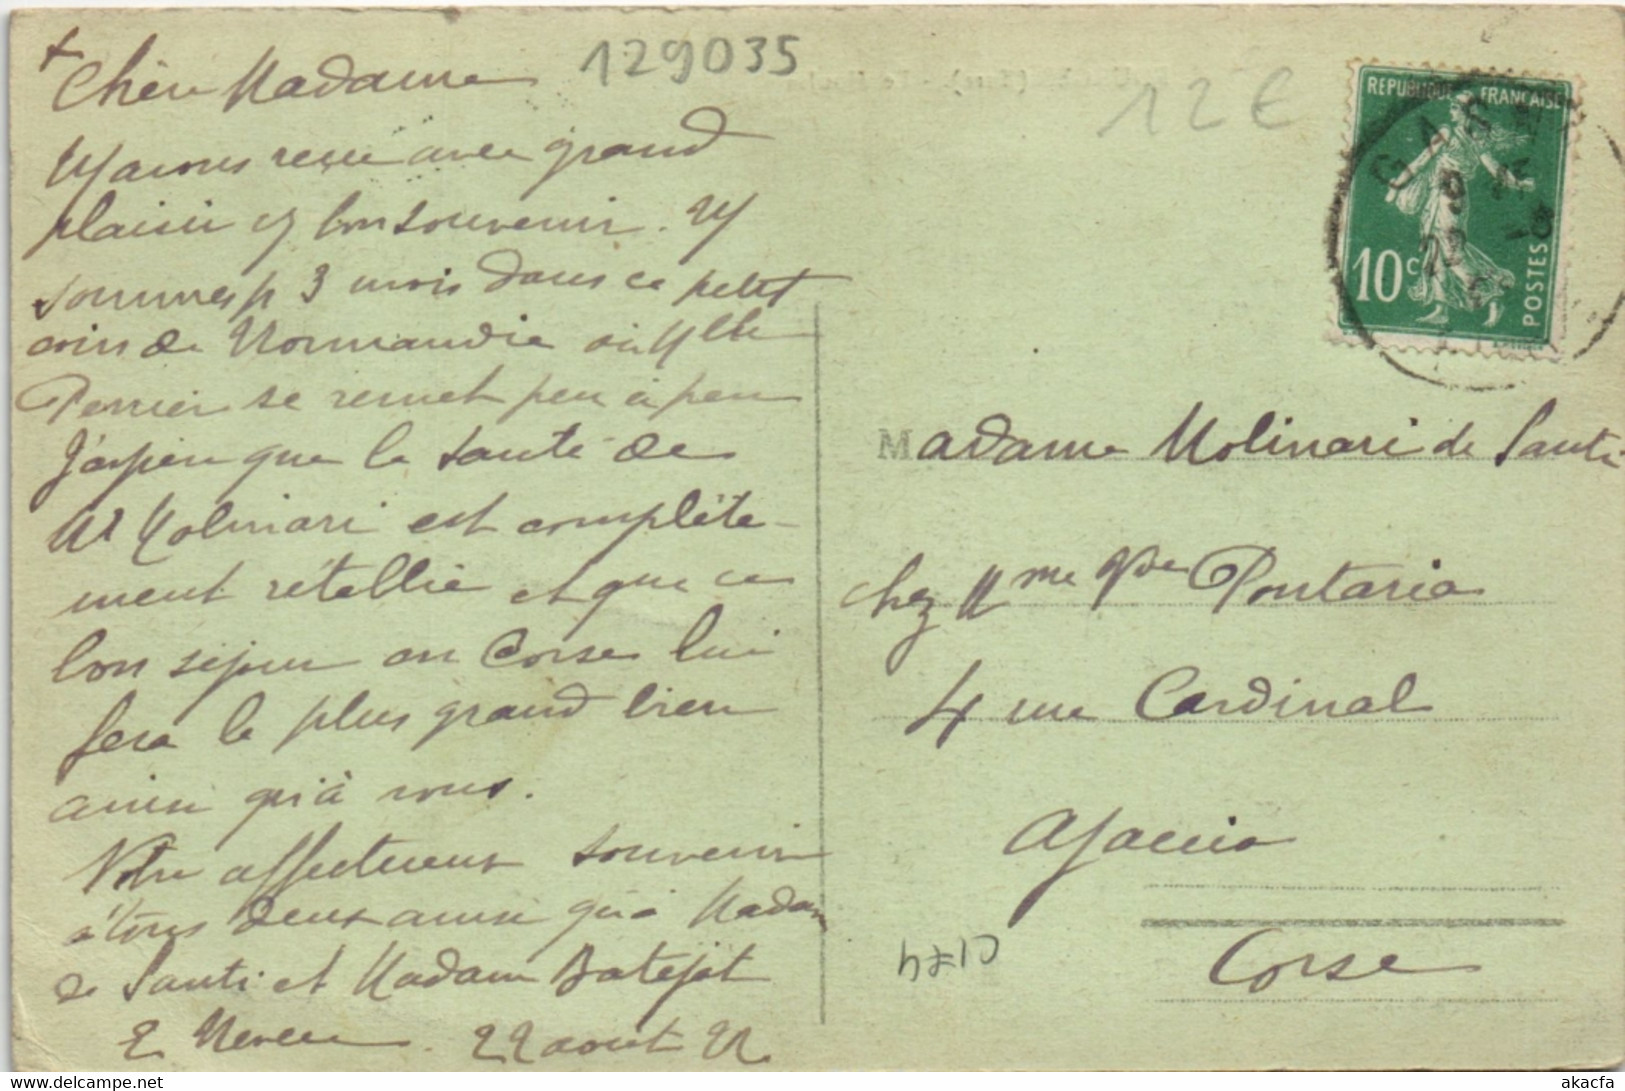 129035
12 €
Chère Madame
avons reçu avec grand
plaisir bon souvenir.
sommes 3 mois dans ce petit
coin de Normandie où Mlle
Perrier se remet peu à peu
J'espère que la santé de
Mr Molinari est complète-
ment rétablie et que ce
bon séjour en Corse lui
fera le plus grand bien
ainsi qu'à vous.
Votre affectueux souvenir
à tous deux ainsi qu'à Madame
de Santi et Madame
22 août 22
REPUBLIQUE FRANÇAISE
10c
POSTES
22
Madame Molinari de Santi
chez Mme Vve Pontaria
4 rue Cardinal
Ajaccio
Corse
akacfa
www.delcampe.net